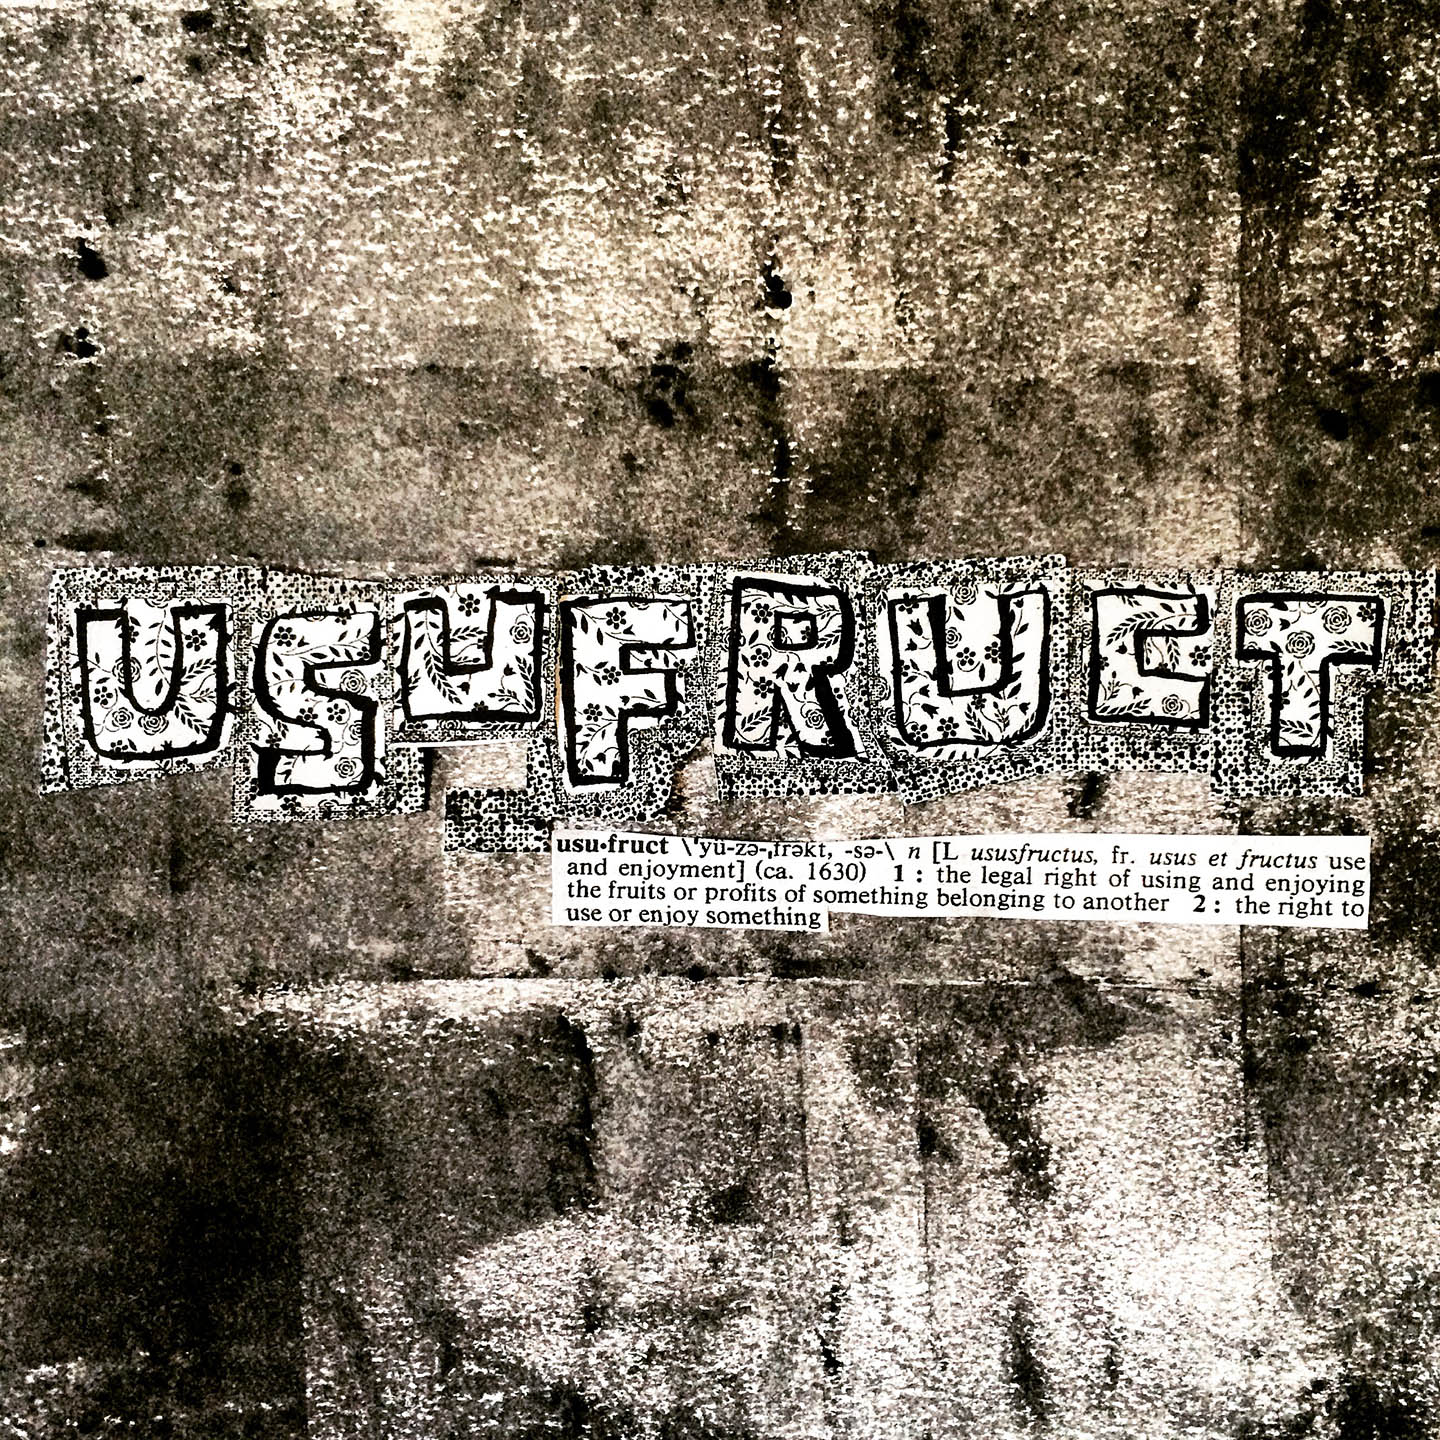 USUFRUCT
usu•fruct \ˈyü-zə-ˌfrəkt, -sə-\ n [L ususfructus, fr. usus et fructus use
and enjoyment] (ca. 1630) 1 : the legal right of using and enjoying
the fruits or profits of something belonging to another 2 : the right to
use or enjoy something